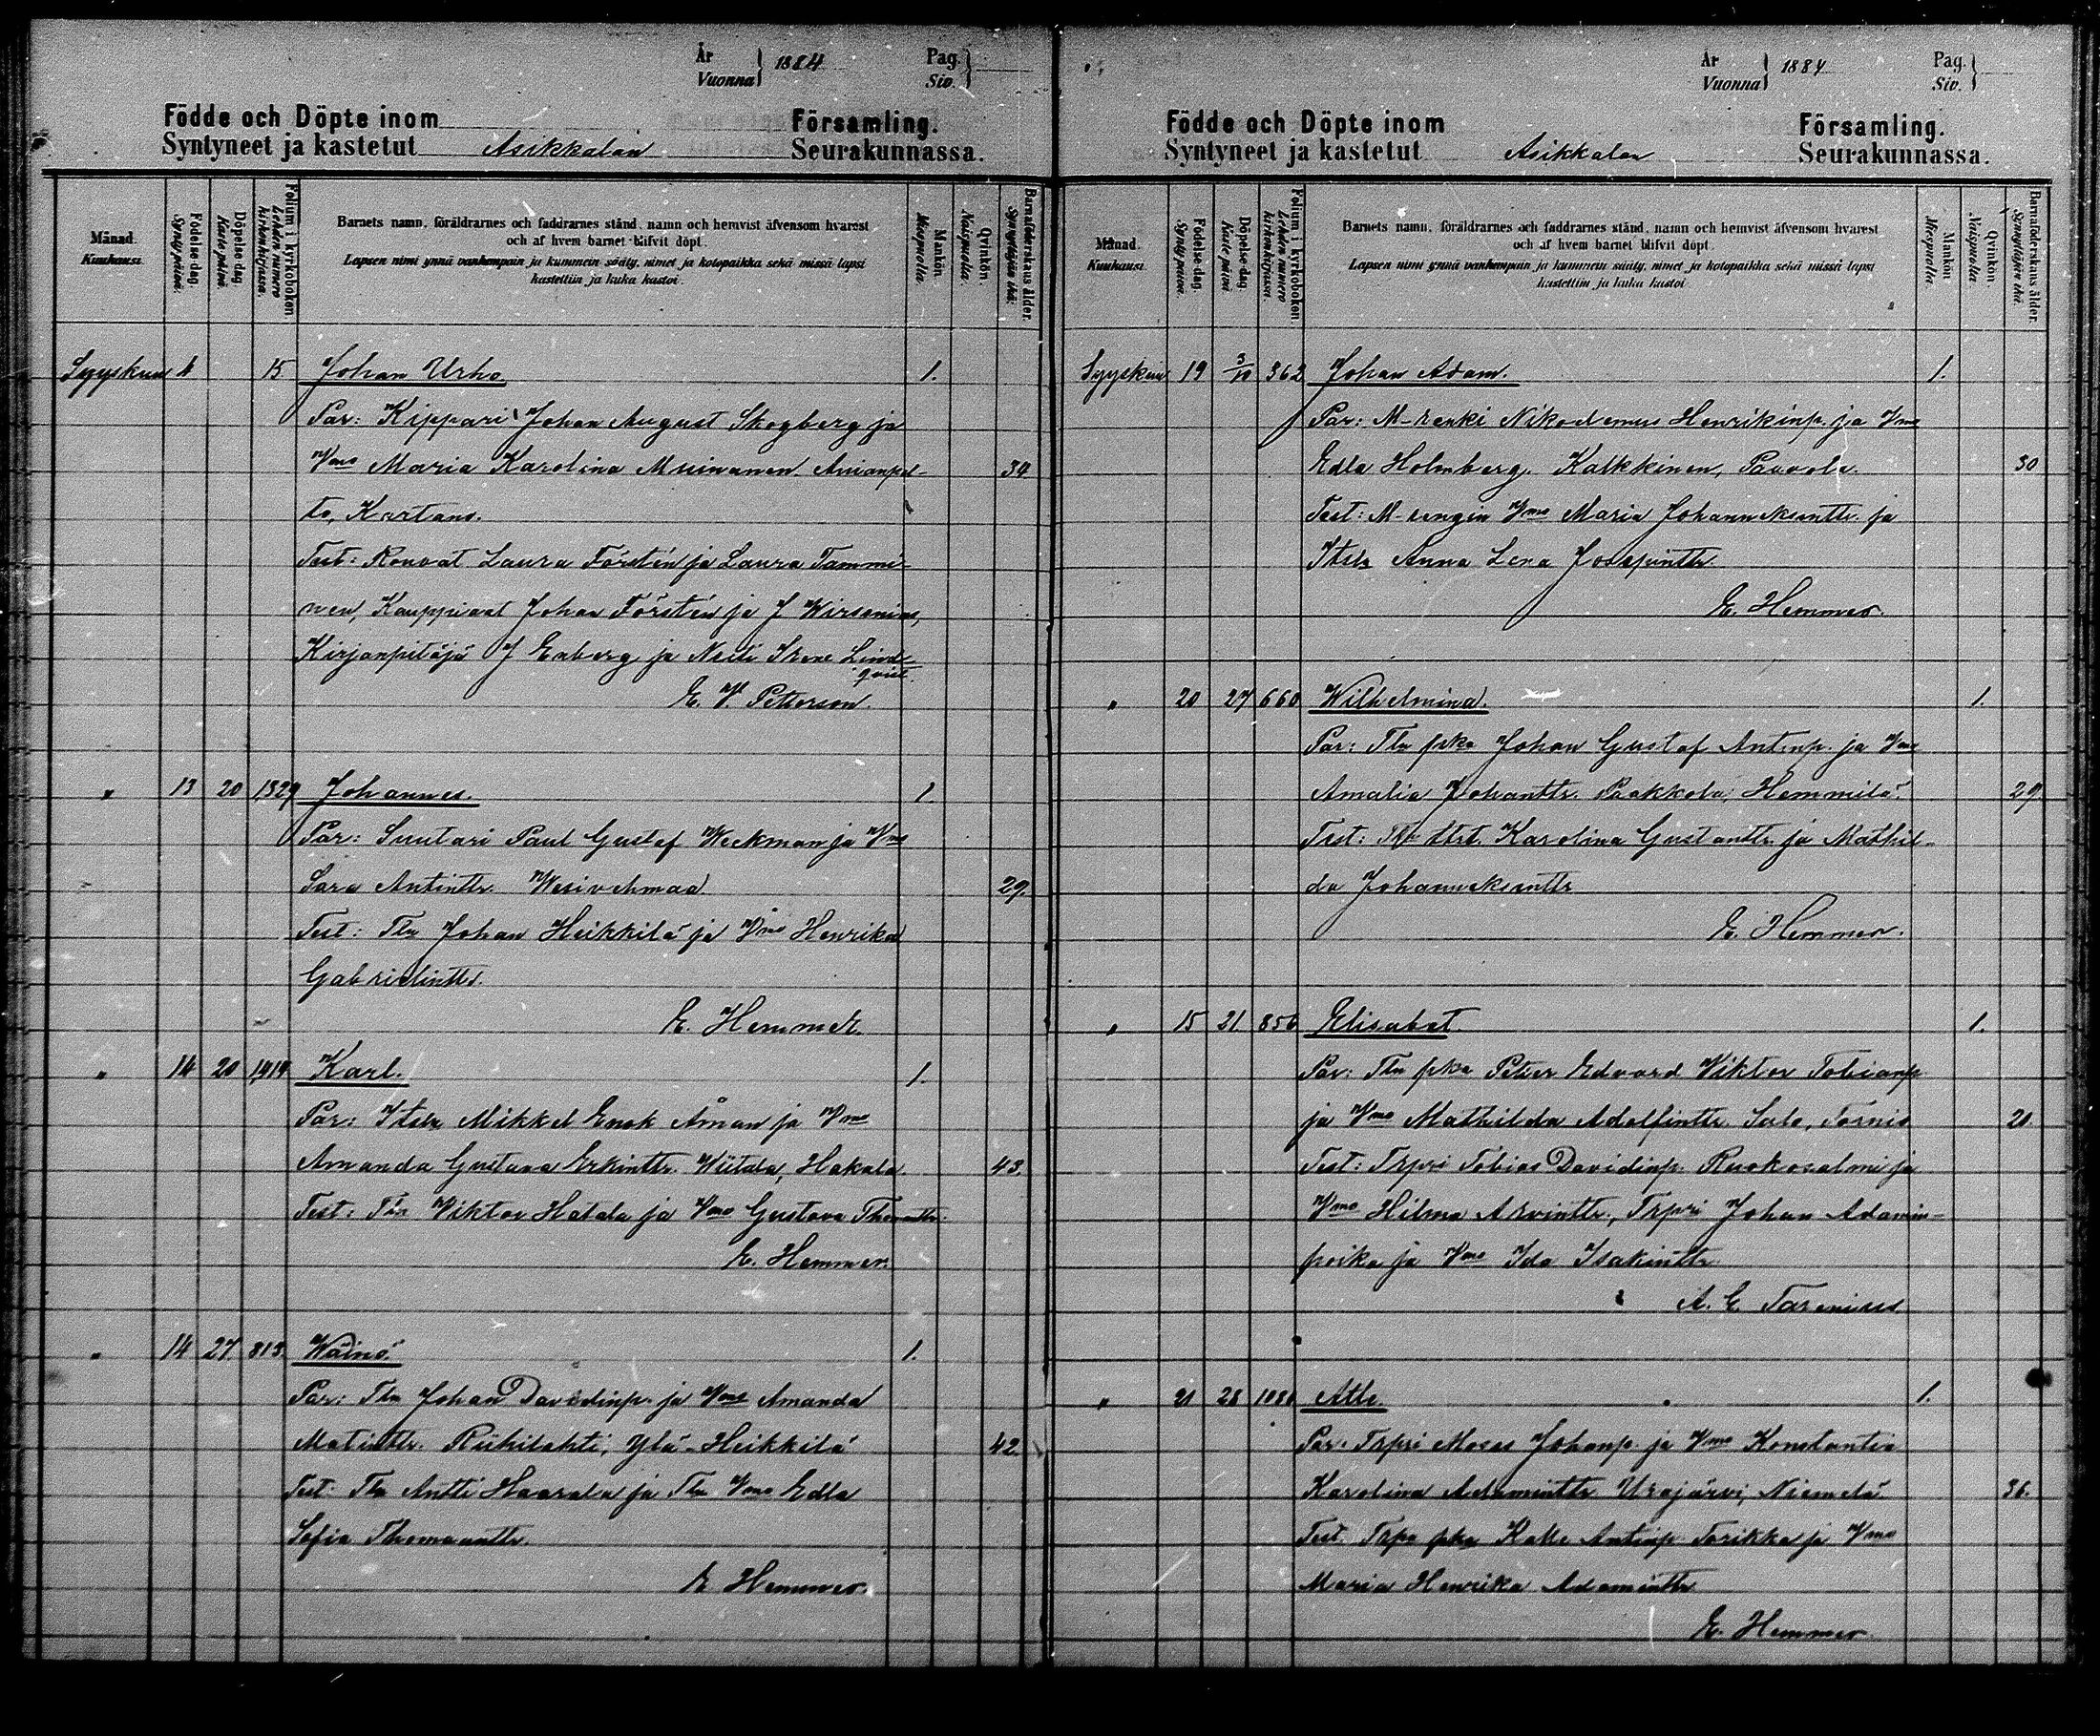 År
Vuonna } 1884 Pag.
Siv. }
Födde och Döpte inom Församling.
Syntyneet ja kastetut Asikkalan Seurakunnassa.
Månad. Kuukausi.
Födelse-dag. Syntypäivä.
Döpelse-dag. Kastepäivä.
Folium i kyrkoboken. Lehden numero kirkonkirjassa.
Barnets namn, föräldrarnes och faddrarnes stånd, namn och hemvist äfvensom hvarest
och af hvem barnet blifvit döpt.
Lapsen nimi ynnä vanhempain ja kummein sääty, nimet ja kotopaikka sekä missä lapsi
kastettiin ja kuka kastoi.
Mankön. Miespuolia.
Qvinkön. Naispuolia.
Barnaföderskans ålder. Synnyttäjän ikä.
Syyskuu 15 Johan Urho 1.
Par: Kippari Johan August Skogberg ja
Vmo Maria Karolina Muinanen Anianpel- 34
to, Kartano.
Test: Rouvat Laura Förstén ja Laura Tammi-
nen, Kauppiaat Johan Förstén ja J Wirsenius,
Kirjanpitäjä J Enberg ja Neiti Irene Lind-
qvist.
E. V. Petterson.
" 13 20 1329 Johannes. 1.
Par: Suutari Paul Gustaf Weckman ja Vmo
Sara Antintr. Wesivehmaa 29.
Test: Tln Johan Heikkilä ja Vmo Henrika
Gabrielintr.
E. Hemmer.
" 14 20 1414 Karl. 1.
Par: Itsln Mikkel Enok Åman ja Vmo
Amanda Gustava Erkintr. Viitala, Hakala 43.
Test: Tln Viktor Hatala ja Vmo Gustava Thomantr.
E. Hemmer.
" 14 27 813. Wäinö. 1.
Par: Tln Johan Davidinp. ja Vmo Amanda
Matintr. Riihilahti, Ylä-Heikkilä 42.
Test: Tln Antti Haarala ja Tln Vmo Edla
Sofia Thomaantr.
E Hemmer.
År
Vuonna } 1884 Pag.
Siv. }
Födde och Döpte inom Församling.
Syntyneet ja kastetut Asikkalan Seurakunnassa.
Månad. Kuukausi.
Födelse-dag. Syntypäivä.
Döpelse-dag. Kastepäivä.
Folium i kyrkoboken. Lehden numero kirkonkirjassa.
Barnets namn, föräldrarnes och faddrarnes stånd, namn och hemvist äfvensom hvarest
och af hvem barnet blifvit döpt.
Lapsen nimi ynnä vanhempain ja kummein sääty, nimet ja kotopaikka sekä missä lapsi
kastettiin ja kuka kastoi
Mankön. Miespuolia.
Qvinkön. Naispuolia
Barnaföderskans ålder. Synnyttäjän ikä.
Syyskuu 19 5/10 362 Johan Adam. 1.
Par: M-renki Nikodemus Henrikinp. ja Vmo
Edla Holmberg. Kalkkinen, Paavola. 30
Test: M-rengin Vmo Maria Johanneksentr. ja
Itsln Anna Lena Josepintr.
E. Hemmer.
" 20 27 660 Wilhelmina. 1.
Par: Tln pka Johan Gustaf Antinp. ja Vmo
Amalia Johantr. Paakkola, Hemmilä. 29
Test: Tln ttret Karolina Gustantr. ja Mathil-
da Johanneksentr
E. Hemmer.
" 15 21 856 Elisabet. 1.
Par: Tln pka Petter Edvard Viktor Tobianp
ja Vmo Mathilda Adolfintr. Salo, Tornio 20.
Test: Trpri Tobias Davidinp. Ruokosalmi ja
Vmo Hilma Arvintr., Trpri Johan Adamin-
poika ja Vmo Ida Isakintr.
A. E. Tarenius
" 21 28 1080 Atle. 1.
Par: Trpri Moses Johanp. ja Vmo Konstantia
Karolina Adamintr. Urajärvi, Niemelä. 36.
Test. Trpr pka Kalle Antinp. Torikka ja Vmo
Maria Henrika Adamintr.
E. Hemmer.